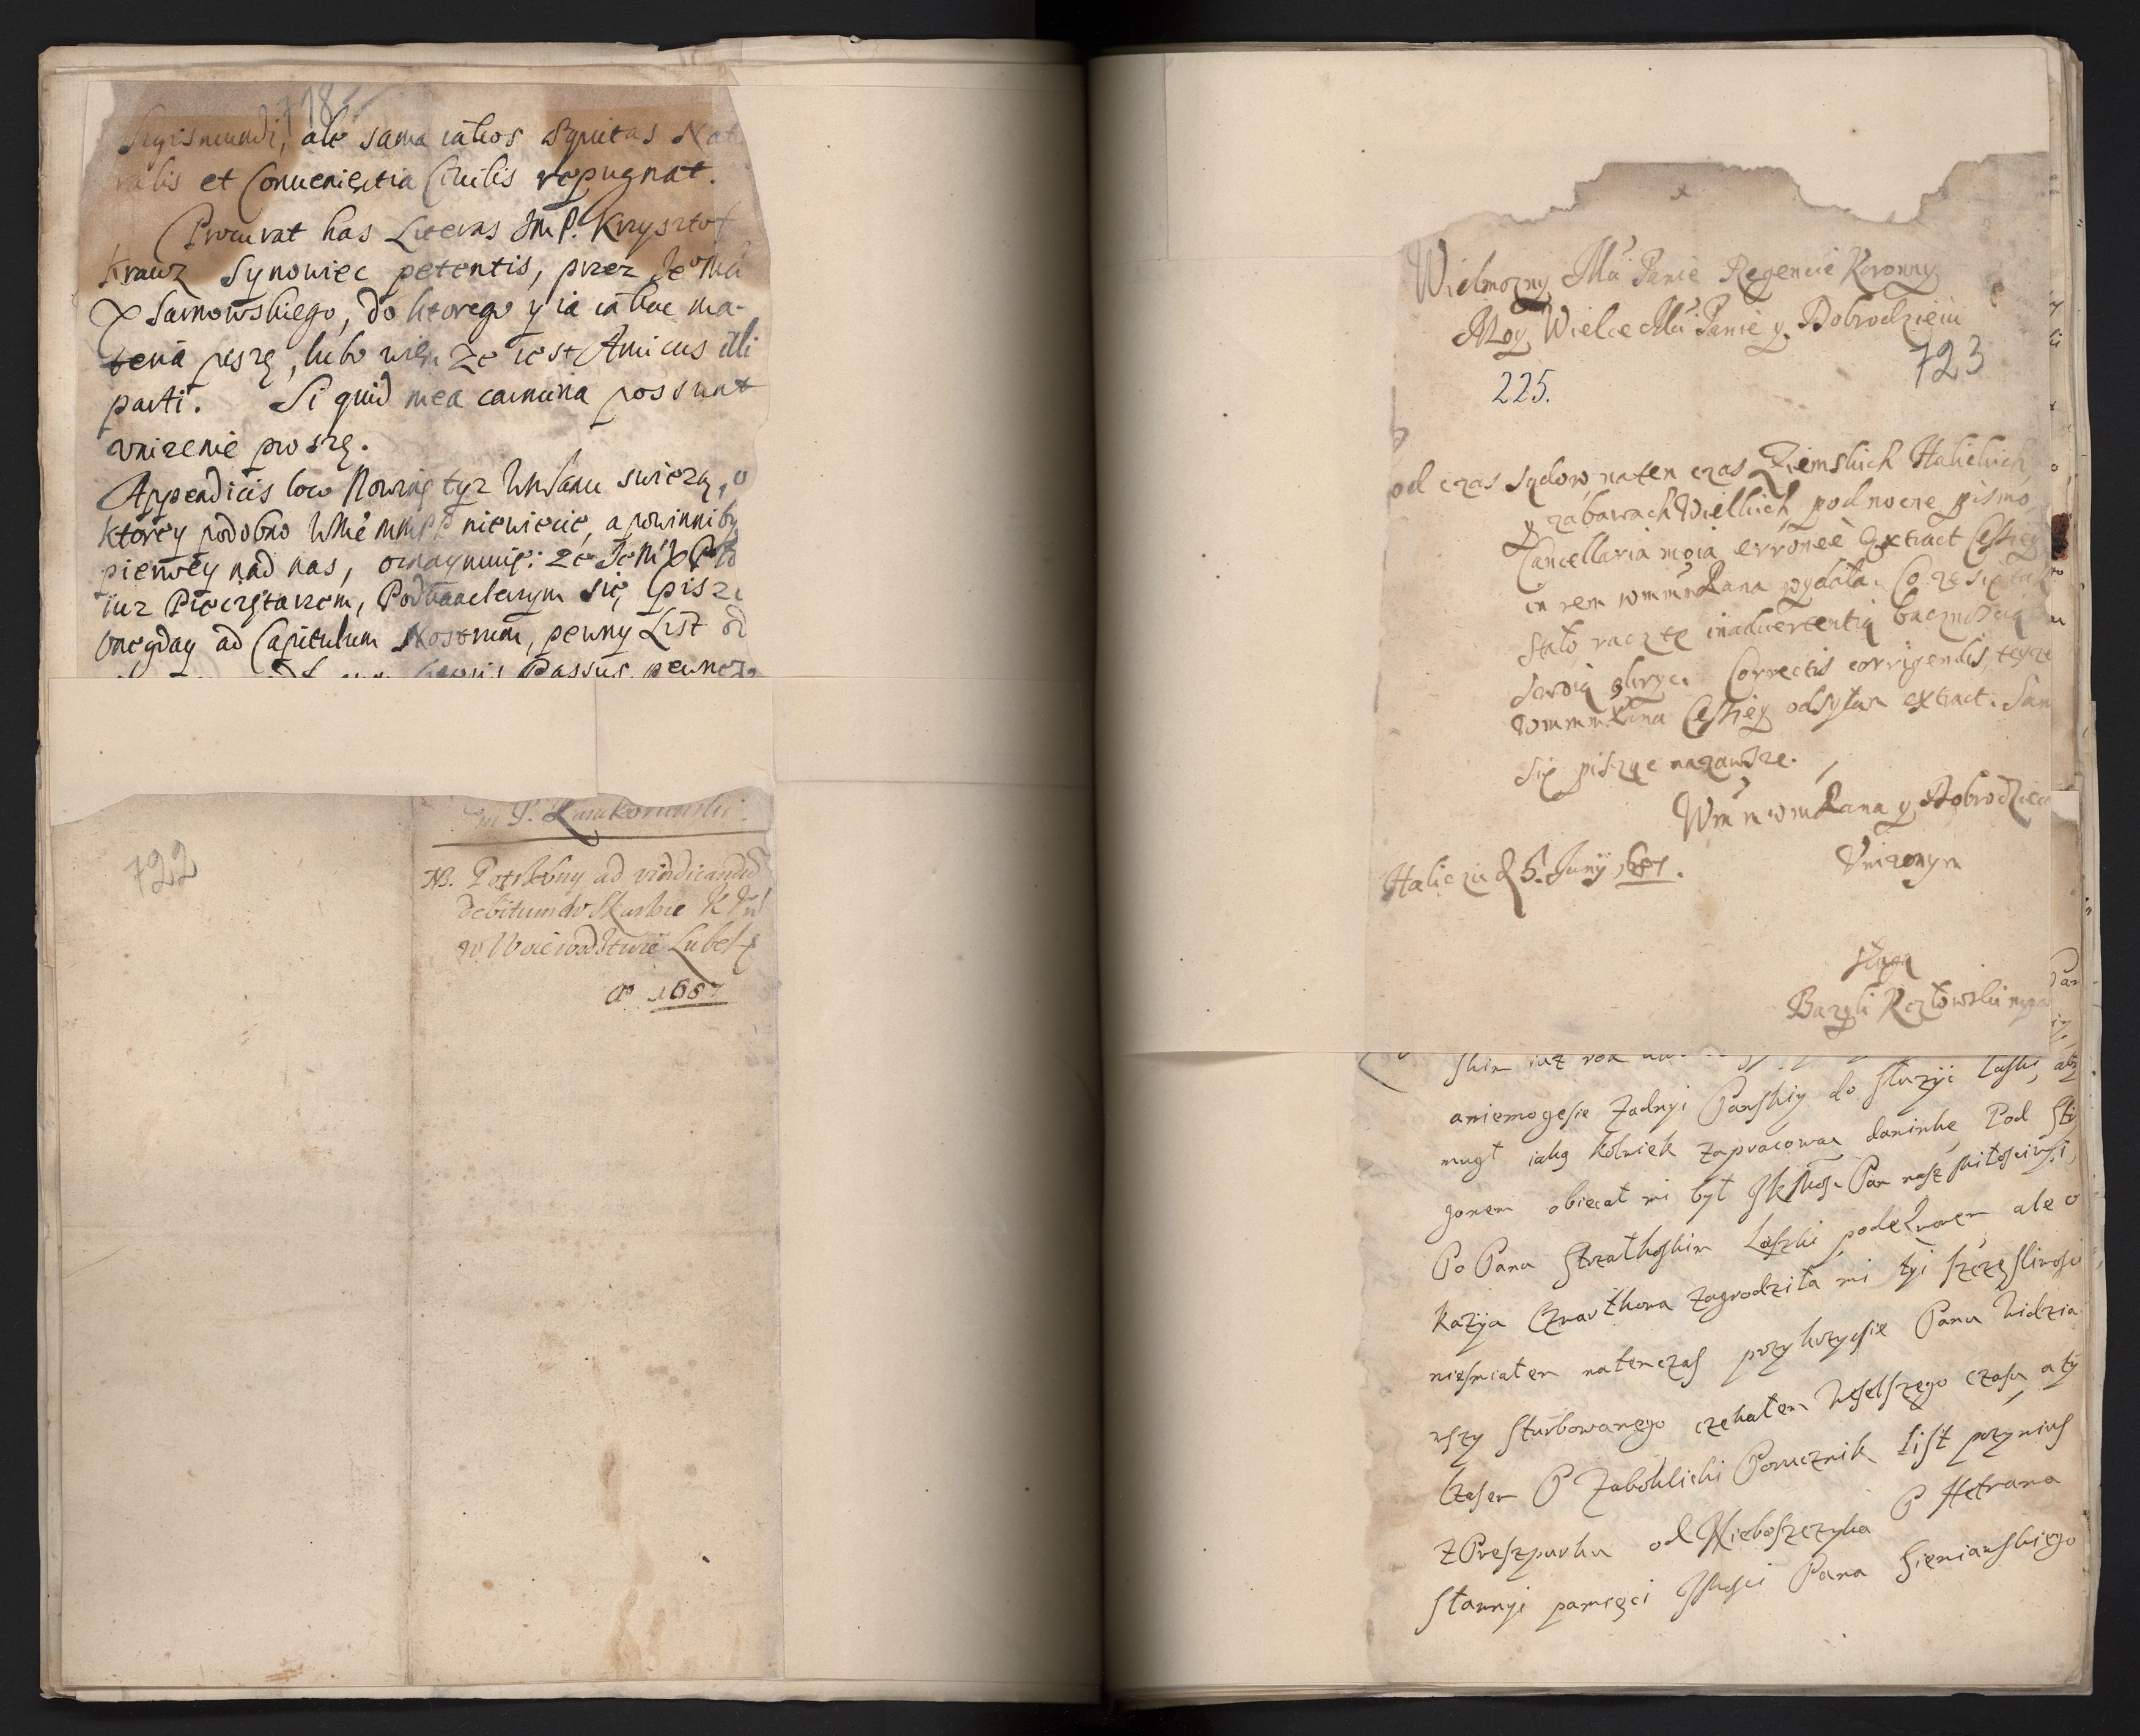 718
Sigismundi, ale sama iakos Equitas Natu
ralis et Convenientia Civilis repugnat.
Procurat has Literas Jm P. Krzysztof
Krauz Synowiec petentis, przez JeoMci
X Sarnowskiego, do ktorego y ia in hac ma-
teria piszę, lubo wiem ze iest Amicus illi
parti. Si quid mea carmina possunt
vnizenie proszę.
Appendicis loco Nowinę tyz swiezą, o
ktorey podobno niewiecie, a powinniby
pierwey nad nas, oznaymuię: ze
iuz Pieczętarzem, Podkanclerzym się pisze
onegday ad Capitulum Nostrum, pewny List od
Passus, pewnego
722
P. Lanckoronski.
NB. Potrzebny ad vindicandū
debitum w Skarbie
w Woiewodztwie Lubel
Aº 1687
Wielmozny Mci Panie Regencie Koronny
Moy Wielce Mci Panie y Dobrodzieiu
723
225.
od czas Sądow naten czas Ziemskich Halickich
y zabawach Wielkich podnocne pismo,
Cancellaria moia erronee Extract Cessiey
in rem wmmPana wydała. Co ze się tak
stało raczę inadvertentią bacznoscią
swoią pokryc. Correctis corrigendis, teyze
wmmmPana Cessiey odsyłam extract. Sam
się pisząc nazawsze.
Wm m wmPana y Dobrodzieia
Vnizonym
Haliczu d 5. Junij 1687.
sługą
Bazyli Rczłowski mpa
skim iuz rok
aniemogęsie Zadnyi Panskiy do sluzyc łaski, aby
mugł iaką kolwiek zapracowac daninkę Pod Stry
gonem obiecał mi był JkMosc Pan nasz Miłosciwyi,
Po Panu Strzałkoskim Laszki podeZwonem ale o
kazya Czwarthowa Zagrodziła mi tyi szczęsliwosci
niesmiałem natenczas przykrzycsie Panu widzia
wszy sturbowanego czekałem weselszego czasu aty
Czasem P Zaboklicki Porucznik list przynius
z Preszpurku od Nieboszczyka P Hetmana
sławnyi pamięci JMosci Pana Sieniawskiego